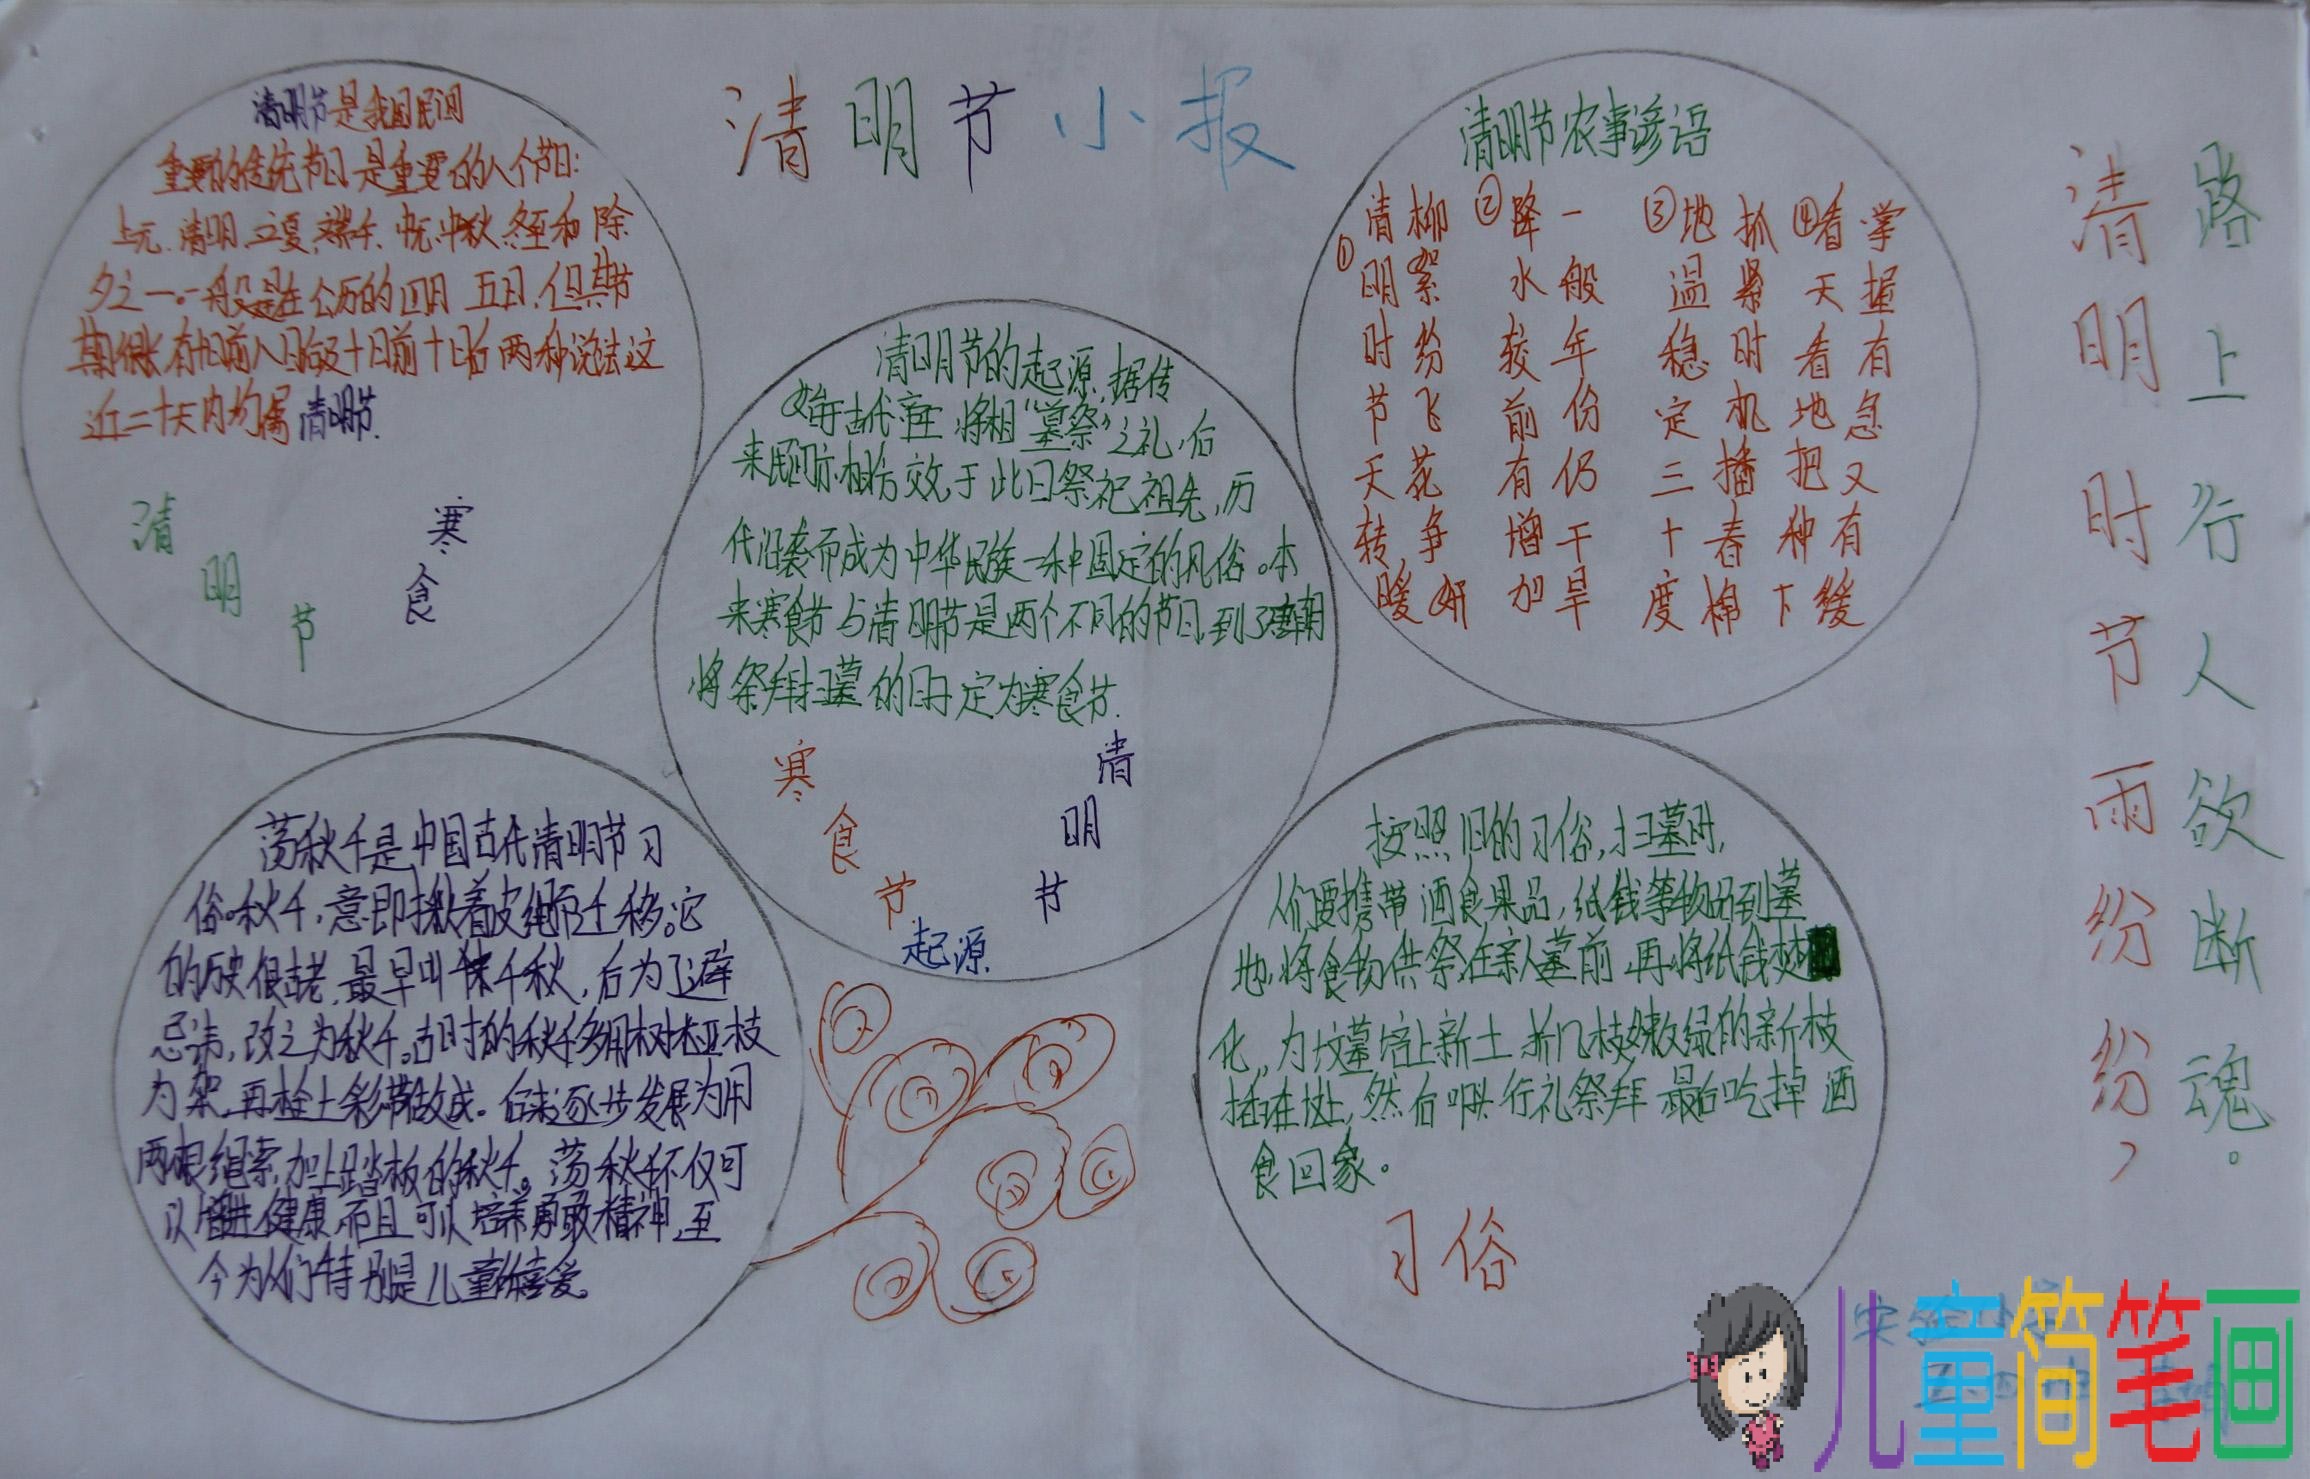 清明节小报
清明节是我国民间
重要的传统节日,是重要的八个节日:
上元、清明、立夏、端午、中元、中秋、冬至和除
夕之一。一般是在公历的四月五日,但其节
期很长,有十日前八日后及十日前十日后两种说法,这
近二十天内均属清明节.
清明节
寒食
清明节的起源,据传
始于古代帝王将相“墓祭”之礼,后
来民间亦相仿效,于此日祭祀祖先,历
代沿袭而成为中华民族一种固定的风俗。本
来寒食节与清明节是两个不同的节日,到了唐朝
将祭拜扫墓的日子定为寒食节.
寒食节
清明节
起源
清明节农事谚语
①清明时节天转暖
柳絮纷飞花争妍
②降水较前有增加
一般年份仍干旱
③地温稳定三十度
抓紧时机播春棉
④看天看地把种下
掌握有急又有缓
清明时节雨纷纷,
路上行人欲断魂。
荡秋千是中国古代清明节习
俗。秋千,意即揪着皮绳而迁移。它
的历史很古老,最早叫千秋,后为了避
忌讳,改之为秋千。古时的秋千多用树桠枝
为架,再栓上彩带做成。后来逐步发展为用
两根绳索,加上踏板的秋千。荡秋千不仅可
以增进健康,而且可以培养勇敢精神,至
今为人们特别是儿童所喜爱。
按照旧的习俗,扫墓时,
人们要携带酒食果品,纸钱等物品到墓
地,将食物供祭在亲人墓前,再将纸钱焚
化,为坟墓培上新土,折几枝嫩绿的新枝
插在坟上,然后叩头行礼祭拜,最后吃掉酒
食回家。
习俗
儿童简笔画